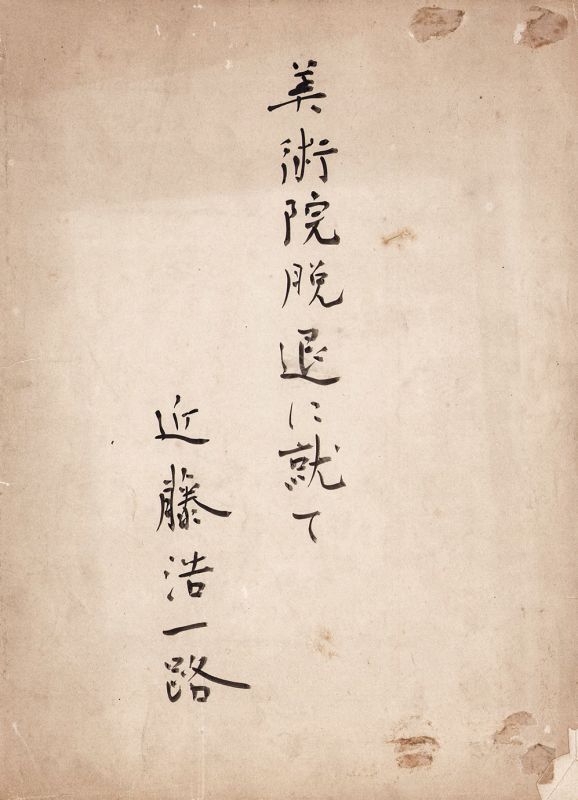 美術院脱退に就て
近藤浩一路